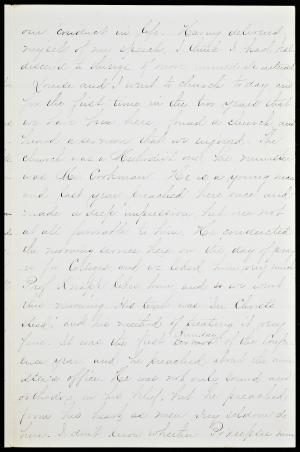 our conduct in life. Having delivered
myself of my speech, I think I had but
descend to things of more immediate interest
Louise and I went to church today and
for the first time in the two years that
we have been here, found a church and
heard a sermon that we enjoyed. The
church was a Methodist one the minister
was Mr. Cookman. He is a young man
and last year preached here once and
made a deep impression but one not
at all favorable to him. He conducted
the morning service here on the day of pray
er for Colleges and we liked him very much
Prof. Knapp likes him and so we went
this morning. His text was "In Christs
stead" and his method of treating it very
fine. It was the first Sunday of the confer
ence year and he preached about the min
ister's office. He was not only sound and
orthodox in his belief but he preached
from his heart as men very seldom do
here. I don't know whether